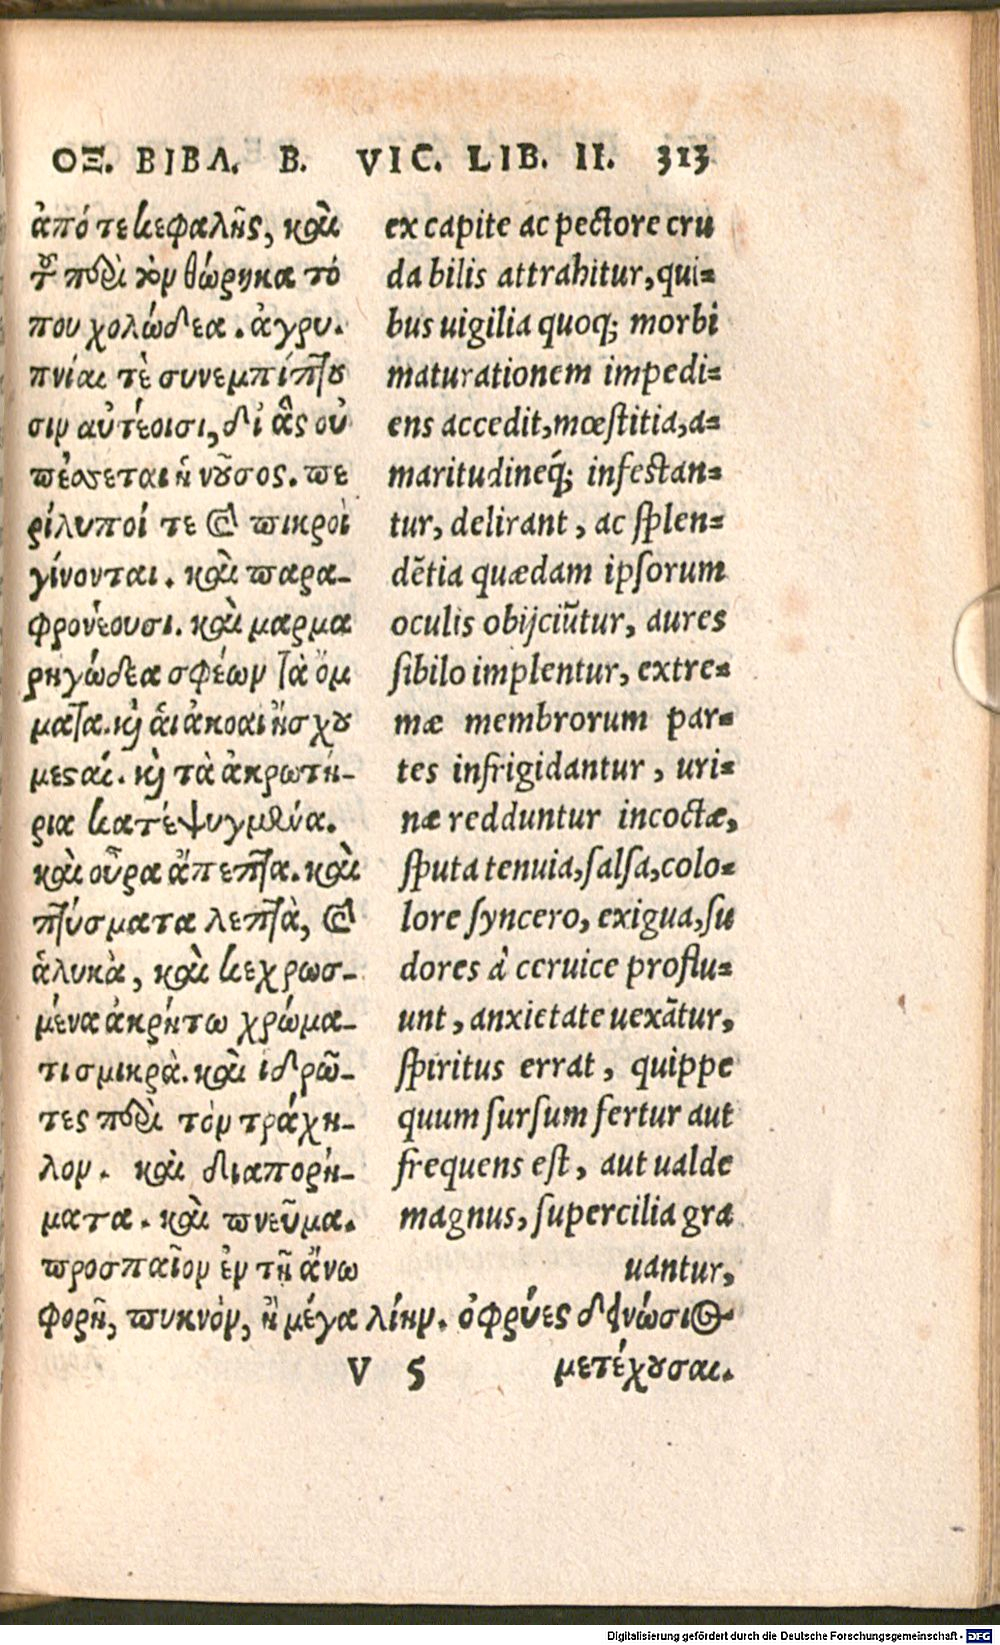 ΟΞ. ΒΙΒΛ. Β. VIC. LIB. II. 313
ἀπό τε κεφαλῆς, καὶ
τ῀ περὶ τὸν θώρηκα τό
που χολώδεα. ἀγρυ.
πνίαι τὲ συνεμπίπτου
σιν αὐτέοισι, δι' ἃς οὐ
πέσσεται ἡ νοῦσος. πε
ρίλυποί τε καὶ πικροὶ
γίνονται. καὶ παρα-
φρονέουσι. καὶ μαρμα
ρηγώδεα σφέων τὰ ὄμ
ματα. καὶ ἁι ἀκοαι ἤσχου
μεσαί. καὶ τὰ ἀκρωτή-
ρια κατέψυγμένα.
καὶ οὖρα ἄπεπτα. καὶ
πτύσματα λεπτὰ, καὶ
ἁλυκὰ, καὶ κεχρωσ-
μένα ἀκρήτω χρώμα-
τι σμικρὰ. καὶ ἱδρῶ-
τες περὶ τὸν τράχη-
λον. καὶ διαπορή-
ματα. καὶ πνεῦμα.
προσπαῖον ἐν τῇ ἄνω
φορῇ, πυκνὸν, ἢ μέγα λίην. ὀφρύες δεινώσιος
ex capite ac pectore cru
da bilis attrahitur, qui=
bus uigilia quoq; morbi
maturationem impedi=
ens accedit, mœstitia, a=
maritudineq́; infestan=
tur, delirant, ac splen=
dẽtia quædam ipsorum
oculis obijciũtur, aures
sibilo implentur, extre=
mæ membrorum par=
tes infrigidantur, uri=
næ redduntur incoctæ,
sputa tenuia, salsa, colo=
lore syncero, exigua, su
dores à ceruice proflu=
unt, anxietate uexãtur,
spiritus errat, quippe
quum sursum fertur aut
frequens est, aut ualde
magnus, supercilia gra
uantur,
V 5 μετέχουσαι.
Digitalisierung gefördert durch die Deutsche Forschungsgemeinschaft - DFG